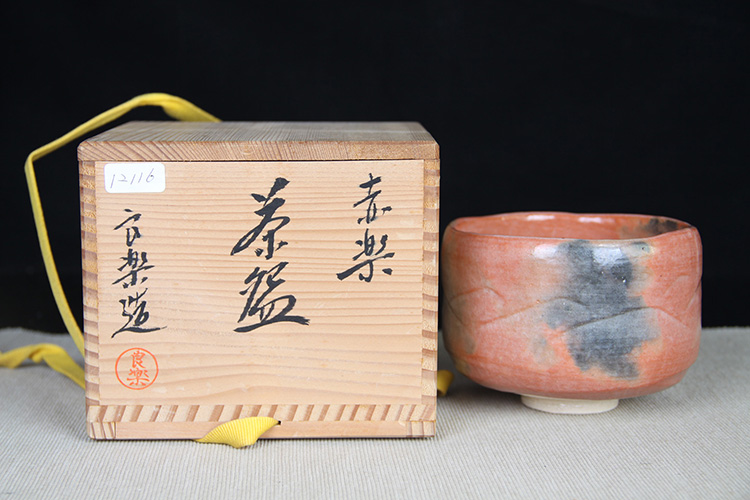 赤楽
茶盌
良楽造
良樂
12116